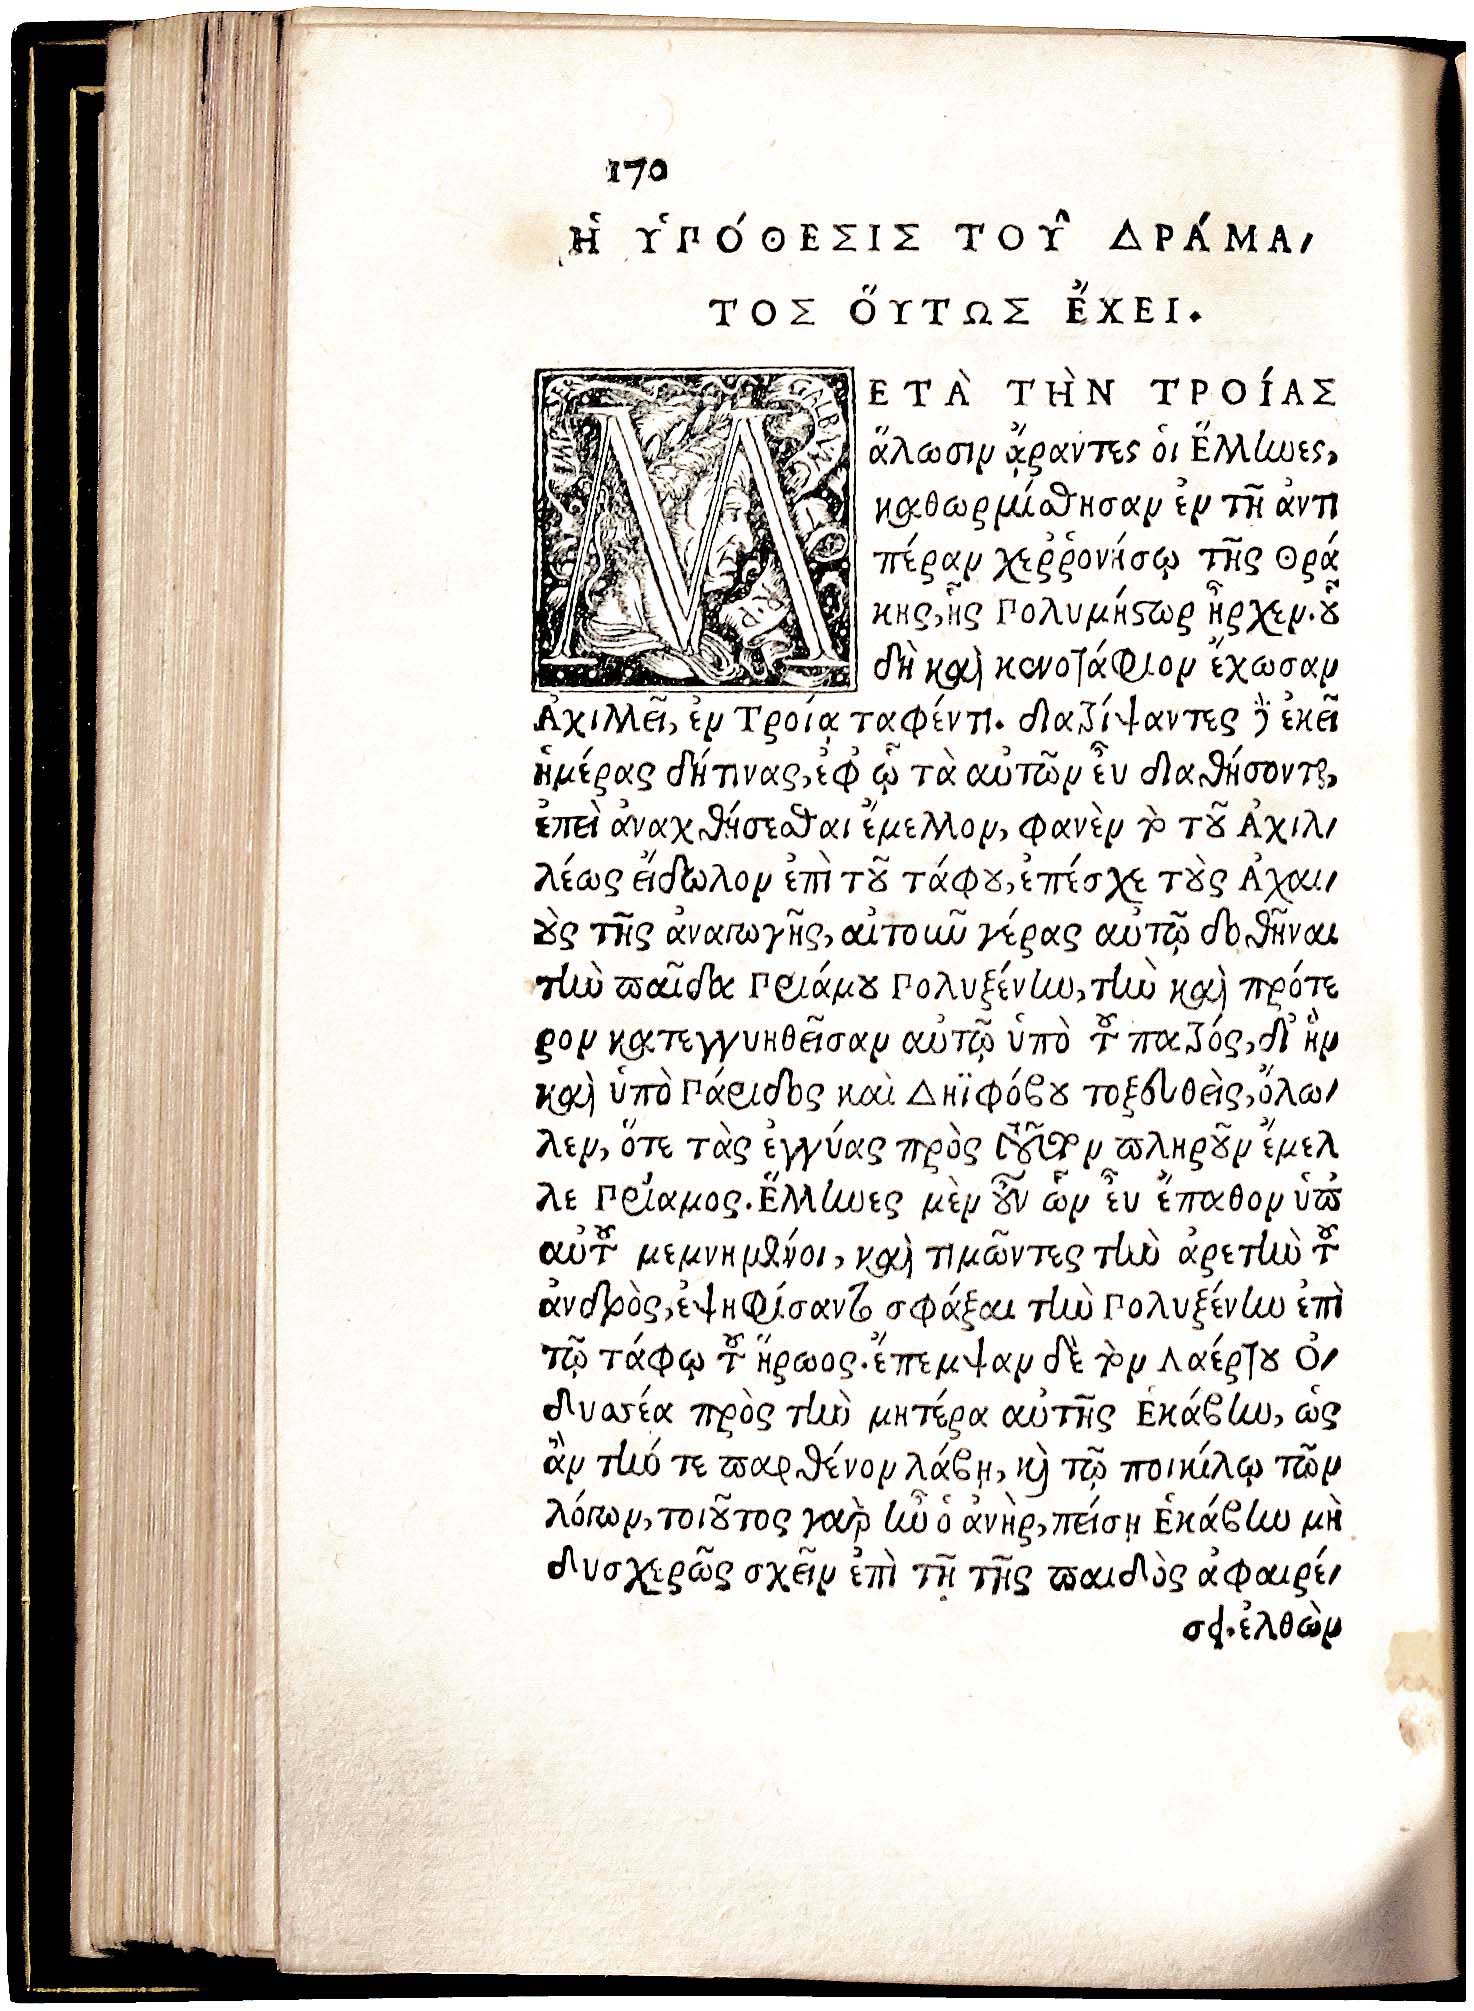 170
Ἡ ὙΠΌΘΕΣΙΣ ΤΟΥ͂ ΔΡΆΜΑ,
ΤΟΣ ὍΥΤΩΣ ἜΧΕΙ.
ΜΕΤᾺ ΤῊΝ ΤΡΟΊΑΣ
ἅλωσιν ἄραντες ὁι Ἕλληνες,
καθωρμίσθησαν ἐν τῇ ἀντι
πέραν χεῤῥονήσῳ τῆς Θρά
κης, ἧς Πολυμήστωρ ἦρχεν. οὗ
δὴ καὶ κενοτάφιον ἔχωσαν
Ἀχιλλεῖ, ἐν Τροίᾳ ταφέντι. διατρίψαντες δὲ ἐκεῖ
ἡμέρας δήτινας, ἐφ ᾧ τὰ αὐτῶν εὖ διαθήσοντες,
ἐπεὶ ἀναχθήσεσθαι ἔμελλον, φανὲν τὸ τοῦ Ἀχιλ,
λέως εἴδωλον ἐπὶ τοῦ τάφου, ἐπέσχε τοὺς Ἀχαι,
οὺς τῆς ἀναγωγῆς, αἰτοιοῦν γέρας αὐτῷ δοθῆναι
τὴν παῖδα Πριάμου Πολυξένην, τὴν καὶ πρότε
ρον κατεγγυηθεῖσαν αὐτῷ ὑπὸ τοῦ πατρός, δι ἣν
καὶ ὑπὸ Πάριδος καὶ Δηϊφόβου τοξευθεὶς, ὄλω,
λεν, ὅτε τὰς ἐγγύας πρὸς τοῦτον πληροῦν ἔμελ
λε Πρίαμος. Ἕλληνες μὲν οὖν ὧν εὖ ἔπαθον ὑπ
αὐτοῦ μεμνημένοι, καὶ τιμῶντες τὴν ἀρετὴν τοῦ
ἀνδρὸς, ἐψηφίσαντο σφάξαι τὴν Πολυξένην ἐπὶ
τῷ τάφῳ τοῦ ἥρωος. ἔπεμψαν δὲ τὸν Λαέρτου Ὀ,
δυσσέα πρὸς τὴν μητέρα αὐτῆς Ἑκάβην, ὡς
ἂν τήν τε παρθένον λάβῃ, καὶ τῷ ποικίλῳ τῶν
λόγων, τοιοῦτος γὰρ ἦν ὁ ἀνὴρ, πείσῃ Ἑκάβην μὴ
δυσχερῶς σχεῖν ἐπὶ τῇ τῆς παιδὸς ἀφαιρέ,
σει. ἐλθὼν